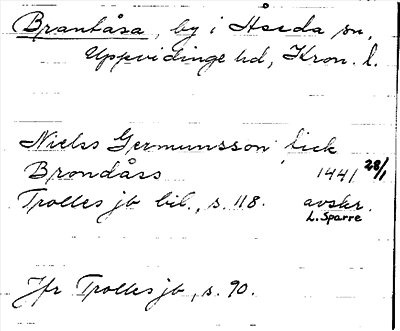 Brantåsa, by i Åseda sn,
Uppvidinge hd, Kron. l.
Nielss Germunsson i bick
Brondåss 1441 28/1
Trolles jb bil., s. 118. avskr.
L. Sparre
Jfr Trolles jb, s. 90.